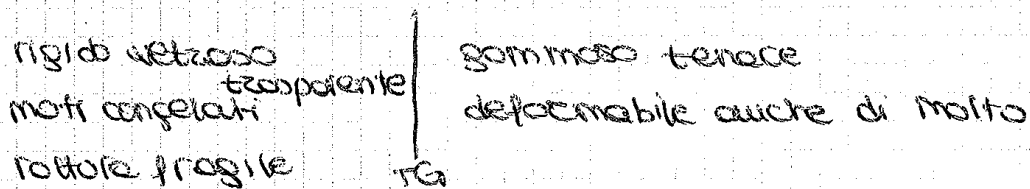 rigido vetroso
trasparente
moti congelati
rottura fragile
gommoso tenace
deformabile anche di molto
TG